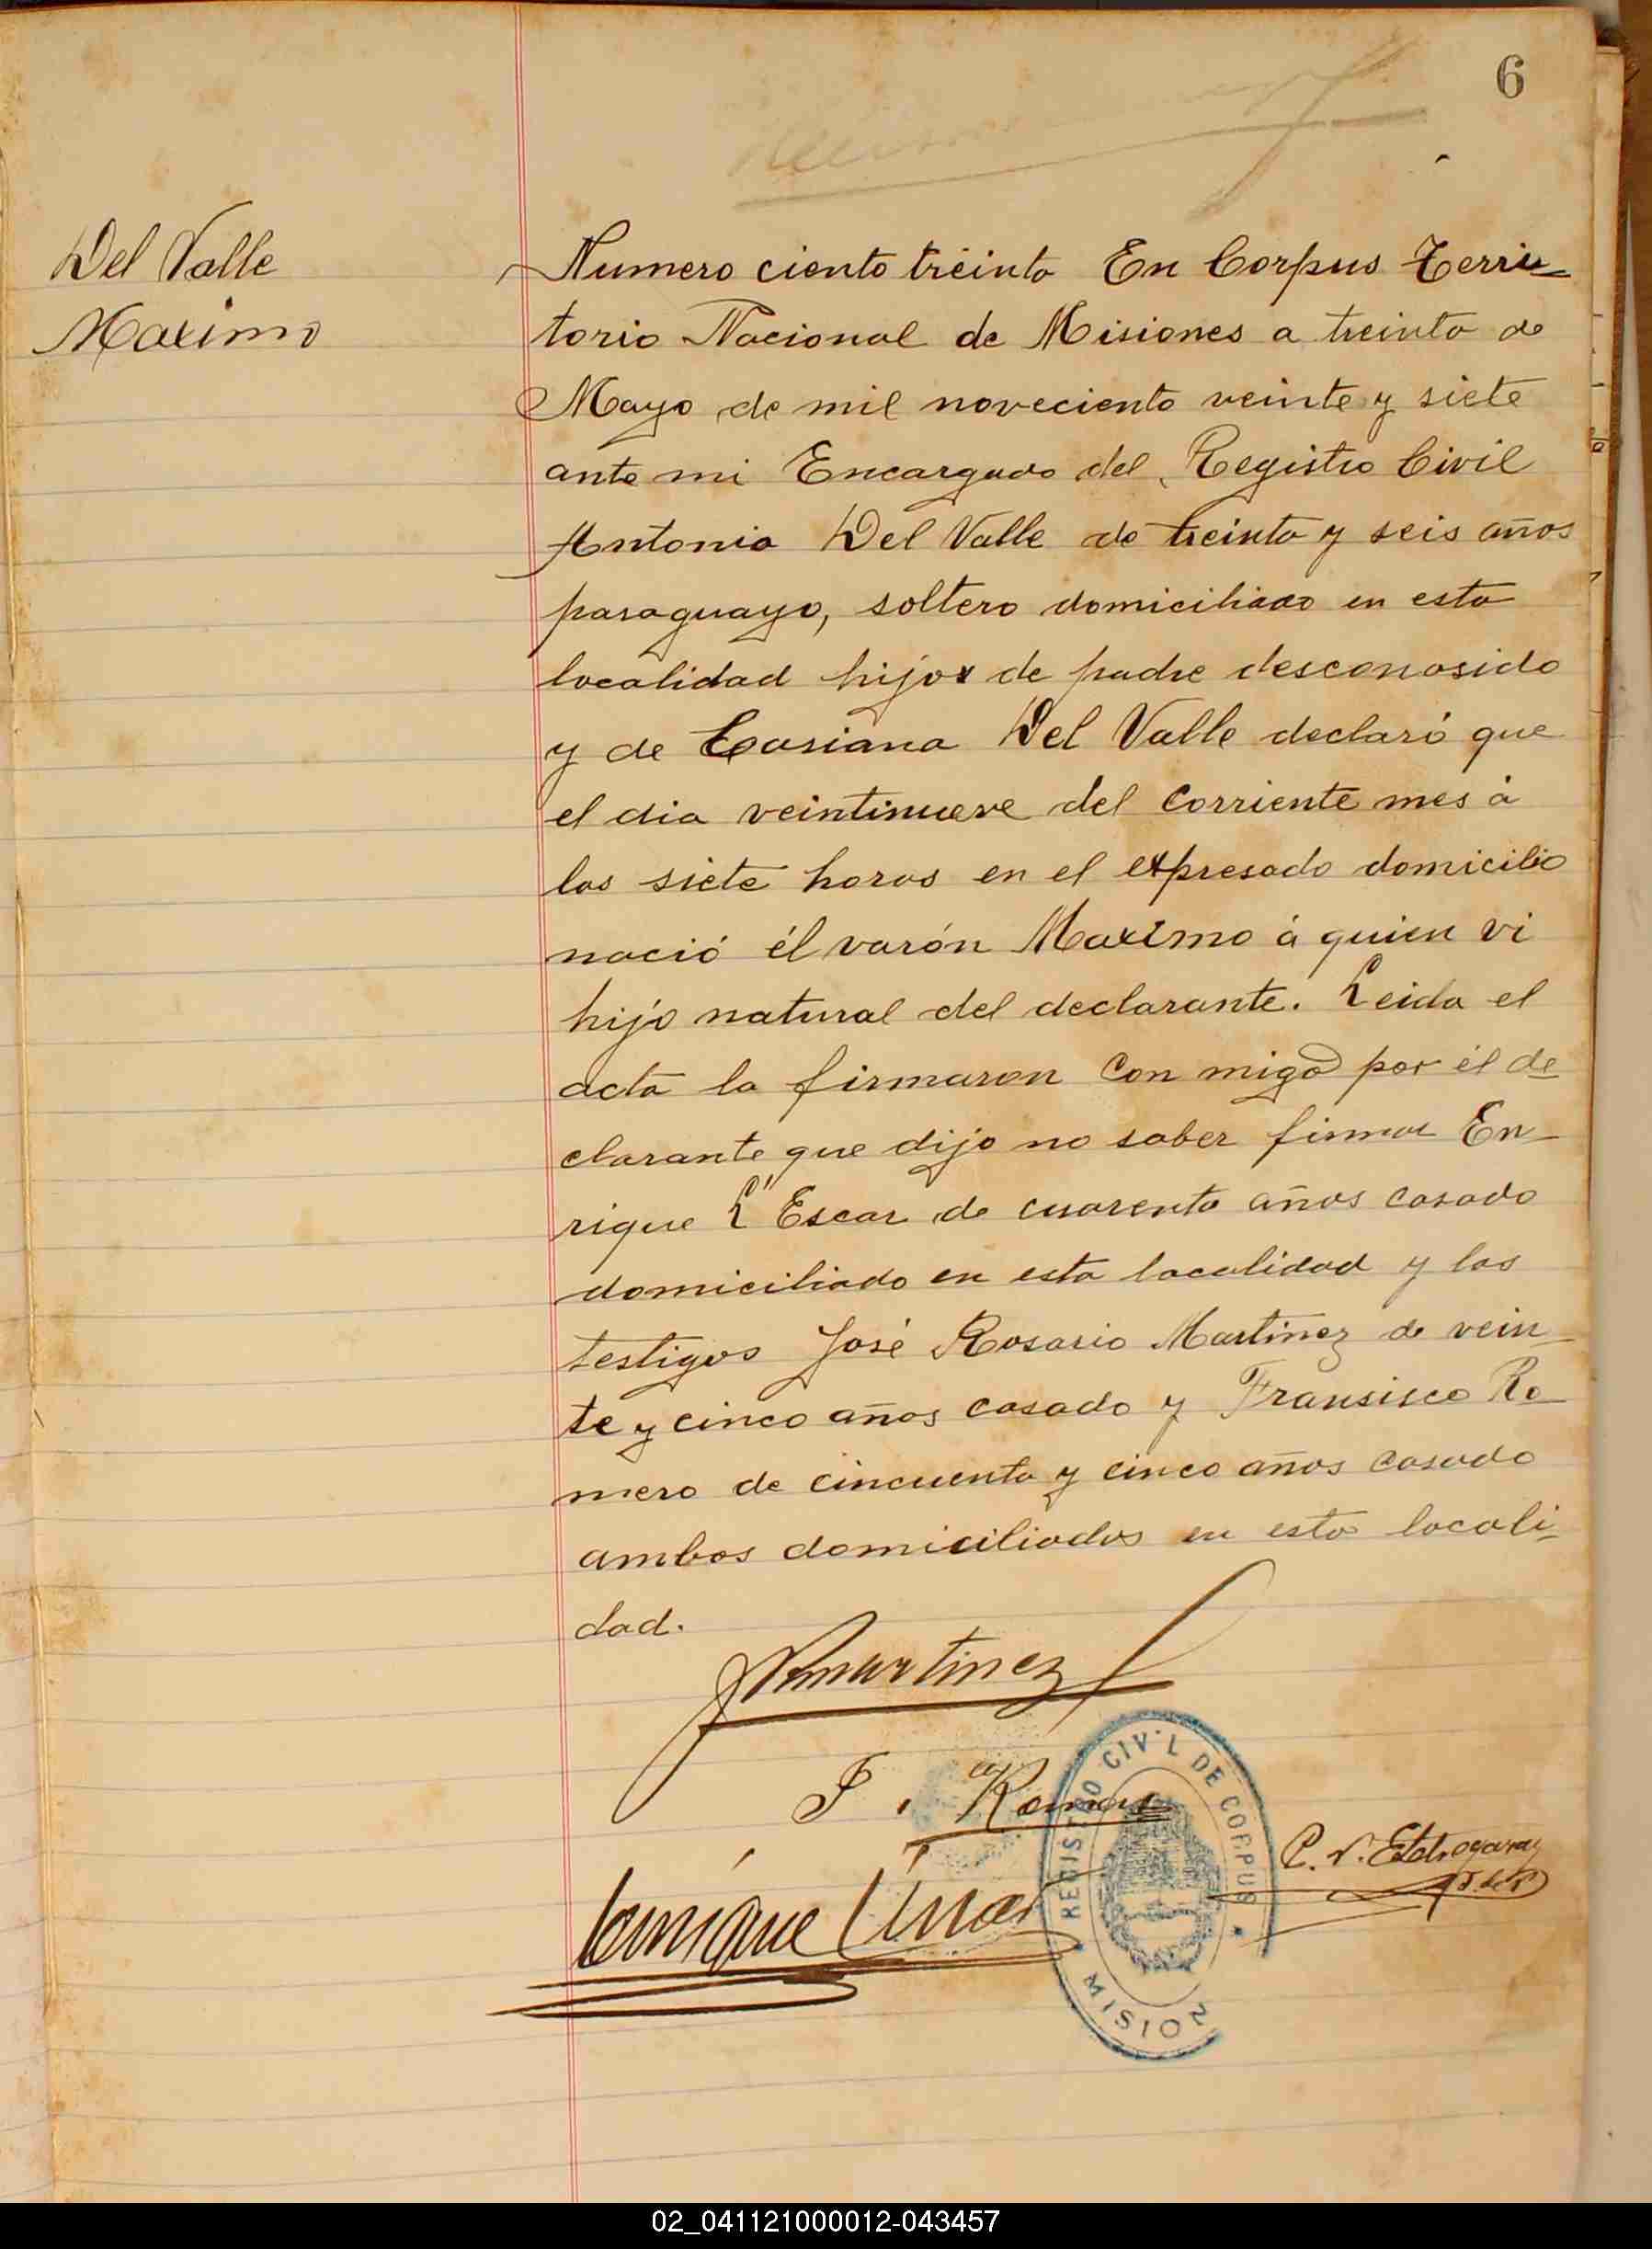 6
Del Valle
Maximo
Numero ciento treinta En Corpus Terri-
torio Nacional de Misiones a treinta de
Mayo de mil noveciento veinte y siete
ante mi Encargado del Registro Civil
Antonio Del Valle de treinta y seis años
paraguayo, soltero domiciliado en esta
localidad hijo de padre desconosido
y de Casiana Del Valle declaró que
el dia veintinueve del corriente mes á
las siete horas en el expresado domicilio
nació él varón Maximo á quien vi
hijo natural del declarante. Leida el
acta la firmaron con migo por él de
clarante que dijo no saber firmar En-
rique L'Escar de cuarenta años casado
domiciliado en esta localidad y los
testigos José Rosario Martinez de vein-
te y cinco años casado y Fransisco Ro-
mero de cincuenta y cinco años casado
ambos domiciliados en esta locali-
dad.
Martinez
F. Romero
Enrique
REGISTRO CIVIL DE CORPUS
MISIO
02_041121000012-043457